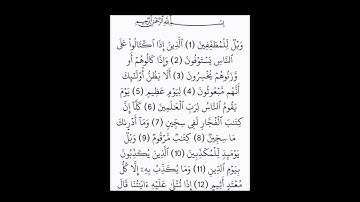 بِسْمِ ٱللَّهِ ٱلرَّحْمَٰنِ ٱلرَّحِيمِ
وَيْلٌ لِّلْمُطَفِّفِينَ (1) ٱلَّذِينَ إِذَا ٱكْتَالُوا۟ عَلَى
ٱلنَّاسِ يَسْتَوْفُونَ (2) وَإِذَا كَالُوهُمْ أَو
وَّزَنُوهُمْ يُخْسِرُونَ (3) أَلَا يَظُنُّ أُو۟لَٰٓئِكَ
أَنَّهُم مَّبْعُوثُونَ (4) لِيَوْمٍ عَظِيمٍ (5) يَوْمَ
يَقُومُ ٱلنَّاسُ لِرَبِّ ٱلْعَٰلَمِينَ (6) كَلَّآ إِنَّ
كِتَٰبَ ٱلْفُجَّارِ لَفِى سِجِّينٍ (7) وَمَآ أَدْرَىٰكَ
مَا سِجِّينٌ (8) كِتَٰبٌ مَّرْقُومٌ (9) وَيْلٌ
يَوْمَئِذٍ لِّلْمُكَذِّبِينَ (10) ٱلَّذِينَ يُكَذِّبُونَ
بِيَوْمِ ٱلدِّينِ (11) وَمَا يُكَذِّبُ بِهِۦٓ إِلَّا كُلُّ
مُعْتَدٍ أَثِيمٍ (12) إِذَا تُتْلَىٰ عَلَيْهِ ءَايَٰتُنَا قَالَ